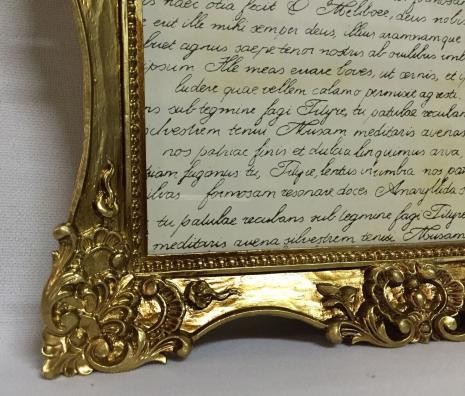 is haec otia fecit O Meliboee, deus nobis
e erit ille mihi semper deus, illius aramnamque
buet agnus saepe tenor nostris ab ovilibus imb
ipsum Ille meas errare boves, ut cernis, et
ludere quae vellem calamo permiset agresti
s sub tegmine fagi Tityre, tu patulae recubans
silvestrem tenui Musam meditaris avenas
nos patriae finis et dulcia linquimus arva,
iam fugimus tu, Tityre, lentus in umbra nos pat
ilvas formosam resonare doces Amaryllida
tu patulae recubans sub tegmine fagi Tityre
meditaris avena silvestrem tenui Musam